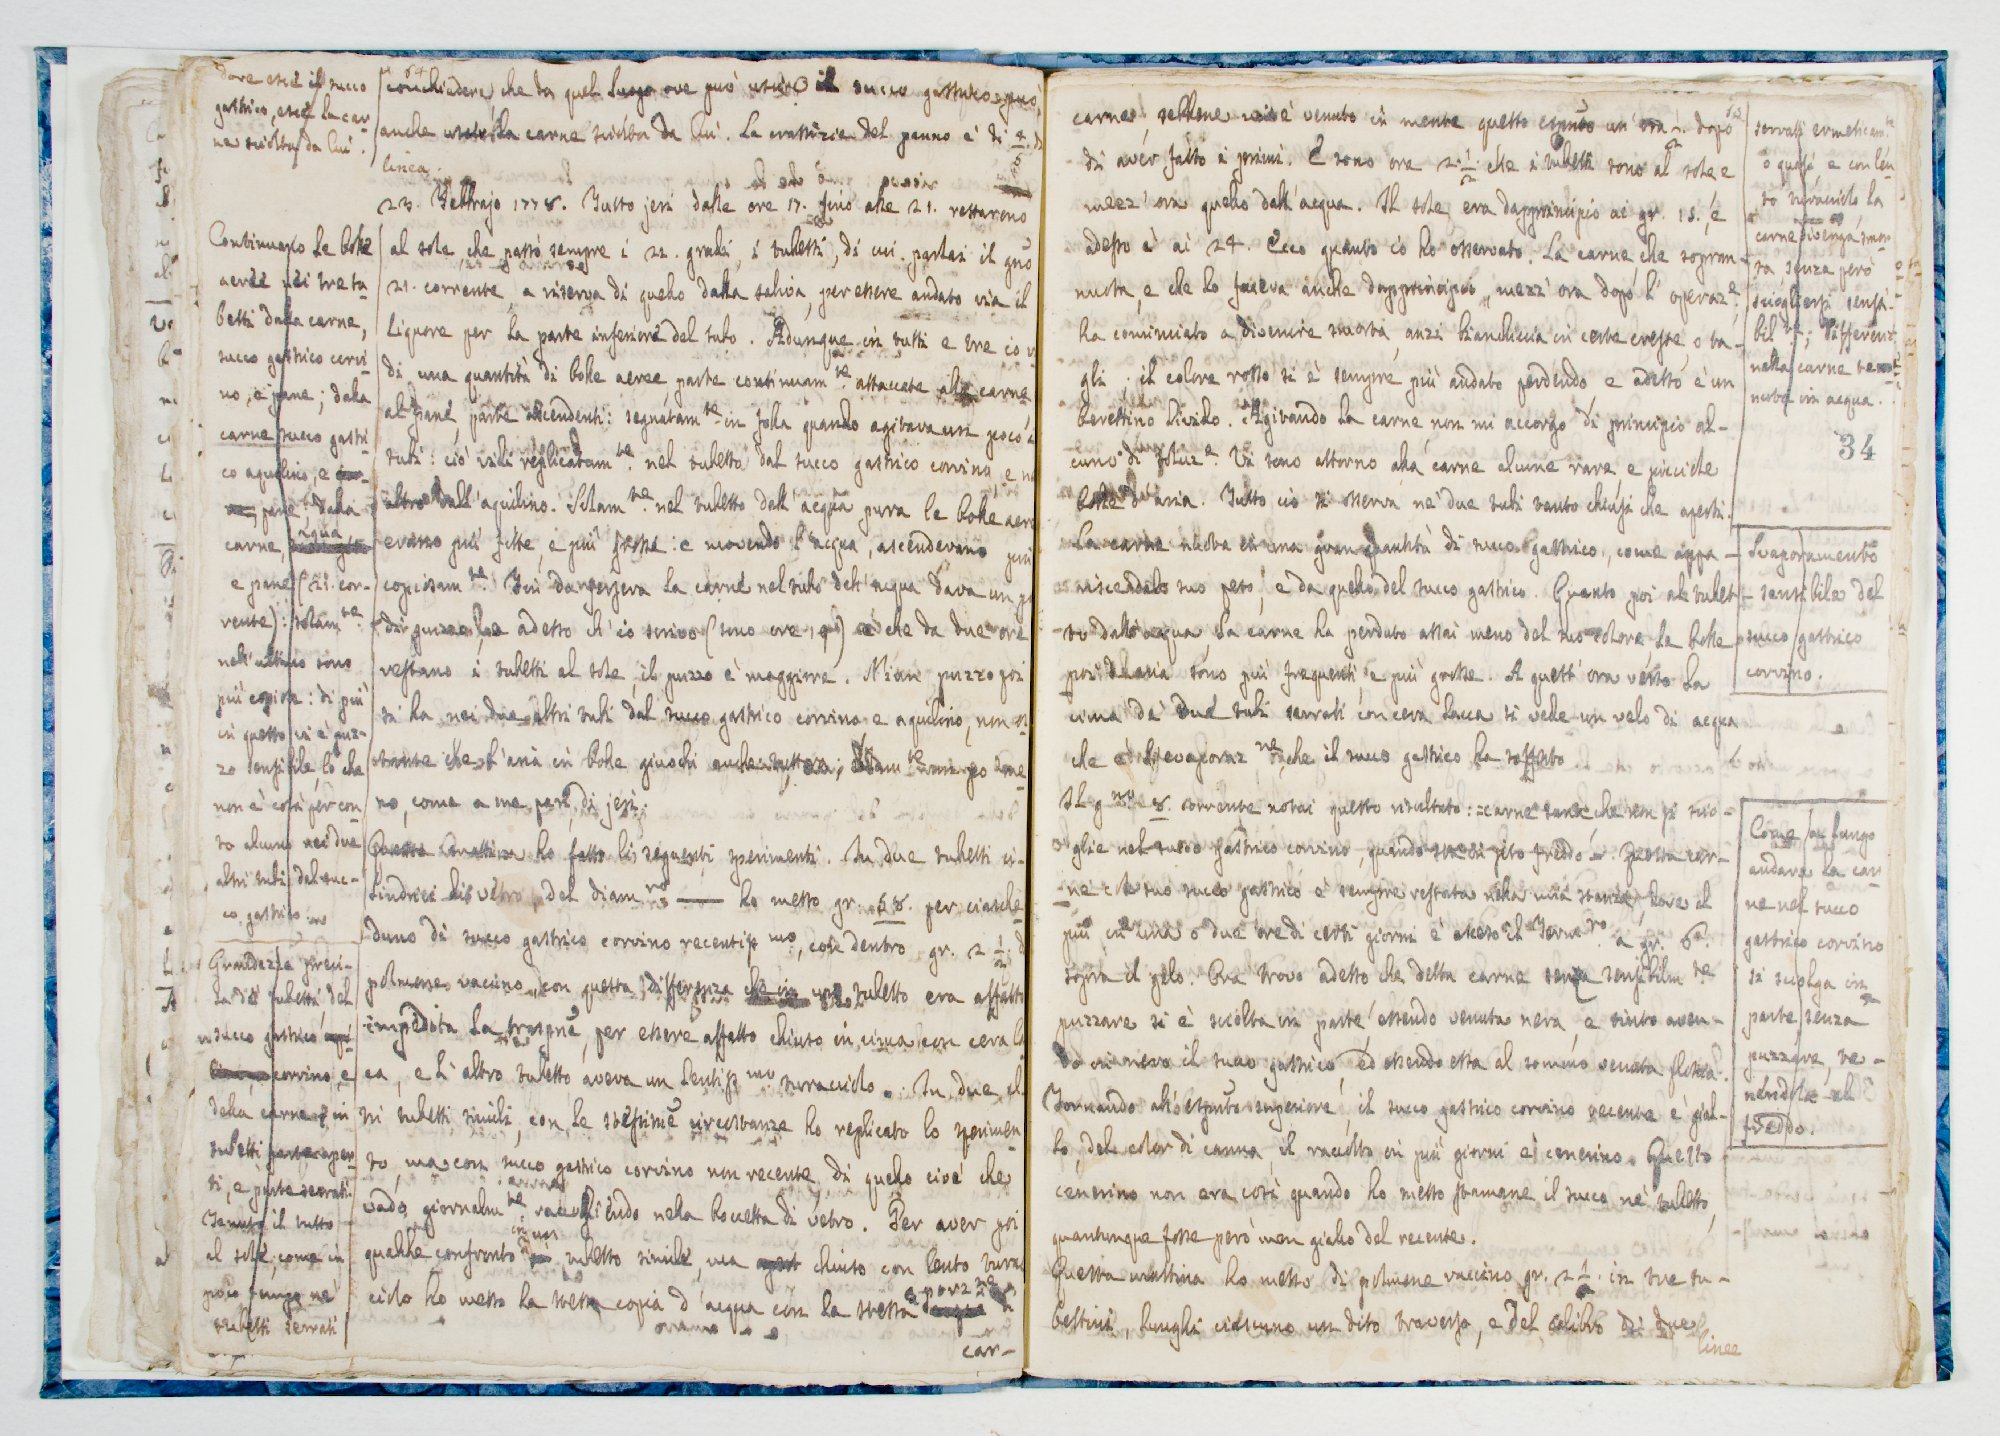 dove esce il succo
gastrico, esce la car-
ne sciolta da lui.
Continuano le bolle
aeree nei tre tu-
betti dalla carne,
succo gastrico corvi-
no, e pane; dalla
carne succo gastri-
co aquilino, e
pane, dalla
carne, acqua
e pane (21. cor-
rente): solam.te
nell'ultimo sono
più copiose: di più
in questo vi è puz-
zo sensibile, lo che
non è così per con-
to alcuno nei due
altri tubi del suc-
co gastrico
Grandezza preci-
sa dei tubetti del
succo gastrico
corvino, e
della carne, in
tubetti parte aper-
ti, e parte serrati.
Tenuto il tutto
al sole, come in
poco tempo ne'
tubetti serrati
64
conchiudere, che da quel luogo ove può uscire il succo gastrico, può
anche la carne sciolta da lui. La crassizie del panno è di
linea.
23. Febbrajo 1778. Tutto jeri dalle ore 17. fino alle 21. restarono
al sole, che passò sempre i 22. gradi, i tubetti, di cui parlai il gno
21. corrente, a riserva di quello dalla saliva, per essere andato via il
liquore per la parte inferiore del tubo. Adunque in tutti e tre io v
di una quantità di bolle aeree, parte continuam.te attaccate alla carne
al pane, parte ascendenti: segnatam.te in folla quando agitava un poco i
tubi: ciò vidi replicatam.te nel tubetto dal succo gastrico corvino, e
dall'aquilino. Solam.te nel tubetto dell'acqua pura le bolle aere
erano più fitte, e più grosse: e movendo l'acqua, ascendevano più
copiosam.te Jeri da sera la carne nel tubo dell'acqua dava un po
di puzzo, e adesso ch'io scrivo (sono ore 19) e che da due ore
restano i tubetti al sole, il puzzo è maggiore. Niun puzzo poi
si ha nei due altri tubi dal succo gastrico corvino e aquilino, non o-
stante che l'aria in bolle giuochi
no, come a me parve, di jeri.
Questa mattina ho fatto li seguenti sperimenti. In due tubetti ci-
lindrici di vetro, del diam.ro —— ho messo gr. 58. per ciasche-
duno di succo gastrico corvino recentiss.mo, con dentro gr. 2 1/2 d
polmone vaccino, con questa differenza che in un tubetto era affatto
impedita la traspne, per essere affatto chiuso in cima con cera la
ca, e l'altro tubetto aveva un lentiss.mo turacciolo. In due al-
tri tubetti simili, con le stessime circostanze ho replicato lo sperimen
to, ma con succo gastrico corvino non recente, di quello cioè che
vado giornalm.te raccogliendo nella boccetta di vetro. Per aver poi
qualche confronto in un tubetto simile, ma chiuso con lento turac
ciolo ho messo la stessa copia d'acqua con la stessa porz.ne di
car-
carne, sebbene mi è venuto in mente questo un'ora dopo
di aver fatto i primi. E sono ore 2 1/2 che i tubetti sono al sole e
mezz'ora quello dell'acqua. Il sole era dapprincipio ai gr. 18., e
adesso è ai 24. Ecco quanto io ho osservato. La carne, che sopran-
nuota, e che lo faceva anche dapprincipio, mezz'ora dopo l'operaz.e,
ha cominciato a divenire smorta, anzi bianchiccia in certe creste, o ta-
gli. il colore rosso si è sempre più andato perdendo e adesso è un
berettino livido. Agitando la carne, non mi accorgo di principio al-
cuno di soluz.e. Vi sono attorno alla carne alcune rare, e picciole
bolle d'aria. Tutto ciò si osserva ne' due tubi tanto chiusi che aperti.
La carne nuota in una gran quantità di succo gastrico, come appa-
risce dal suo peso, e da quello del succo gastrico. Quanto poi al tubet-
to dall'acqua, la carne ha perduto assai meno del suo colore. Le bolle
poi d'aria sono più frequenti, e più grosse. A quest'ora verso la
cima de' due tubi serrati con cera lacca si vede un velo di acqua
che è l'evaporaz.ne che il succo gastrico ha sofferto
Il gno 8. corrente notai questo risultato: =carne che non si scio-
glie nel succo gastrico corvino, quando freddo=. Questa car-
ne e lo suo succo gastrico è sempre restata nella mia stanza, dove il
più in una o due ore di certi giorni è asceso il Term.ro a gr. 6
sopra il gelo. Ora trovo adesso che detta carne senza sensibilm.te
puzzare si è sciolta in parte essendo venuta nera, e tinto aven-
do in nero il succo gastrico, ed essendo essa al sommo venuta floscia.
Tornando all'esperimto superiore, il succo gastrico corvino recente è gial-
lo, del color di canna, il raccolto in più giorni è cenerino. Questo
cenerino non era così quando ho messo stamane il succo ne' tubetti,
quantunque fosse però men giallo del recente.
Questa mattina ho messo di polmone vaccino gr. 2 1/2. in tre tu-
bettini, lunghi ciascuno un dito traverso, e del calibro di due
linee
serrati ermeticam.te
o quasi e con len-
to turacciolo la
carne divenga smor-
ta senza però
sciogliersi sensi-
bilm.te; differenza
nella carne te-
nuta in acqua.
34
Svaporamento
sensibile del
succo gastrico
corvino.
Come a lungo
andare la car-
ne nel succo
gastrico corvino
si sciolga in
parte senza
puzzare, te-
nendola al
freddo.